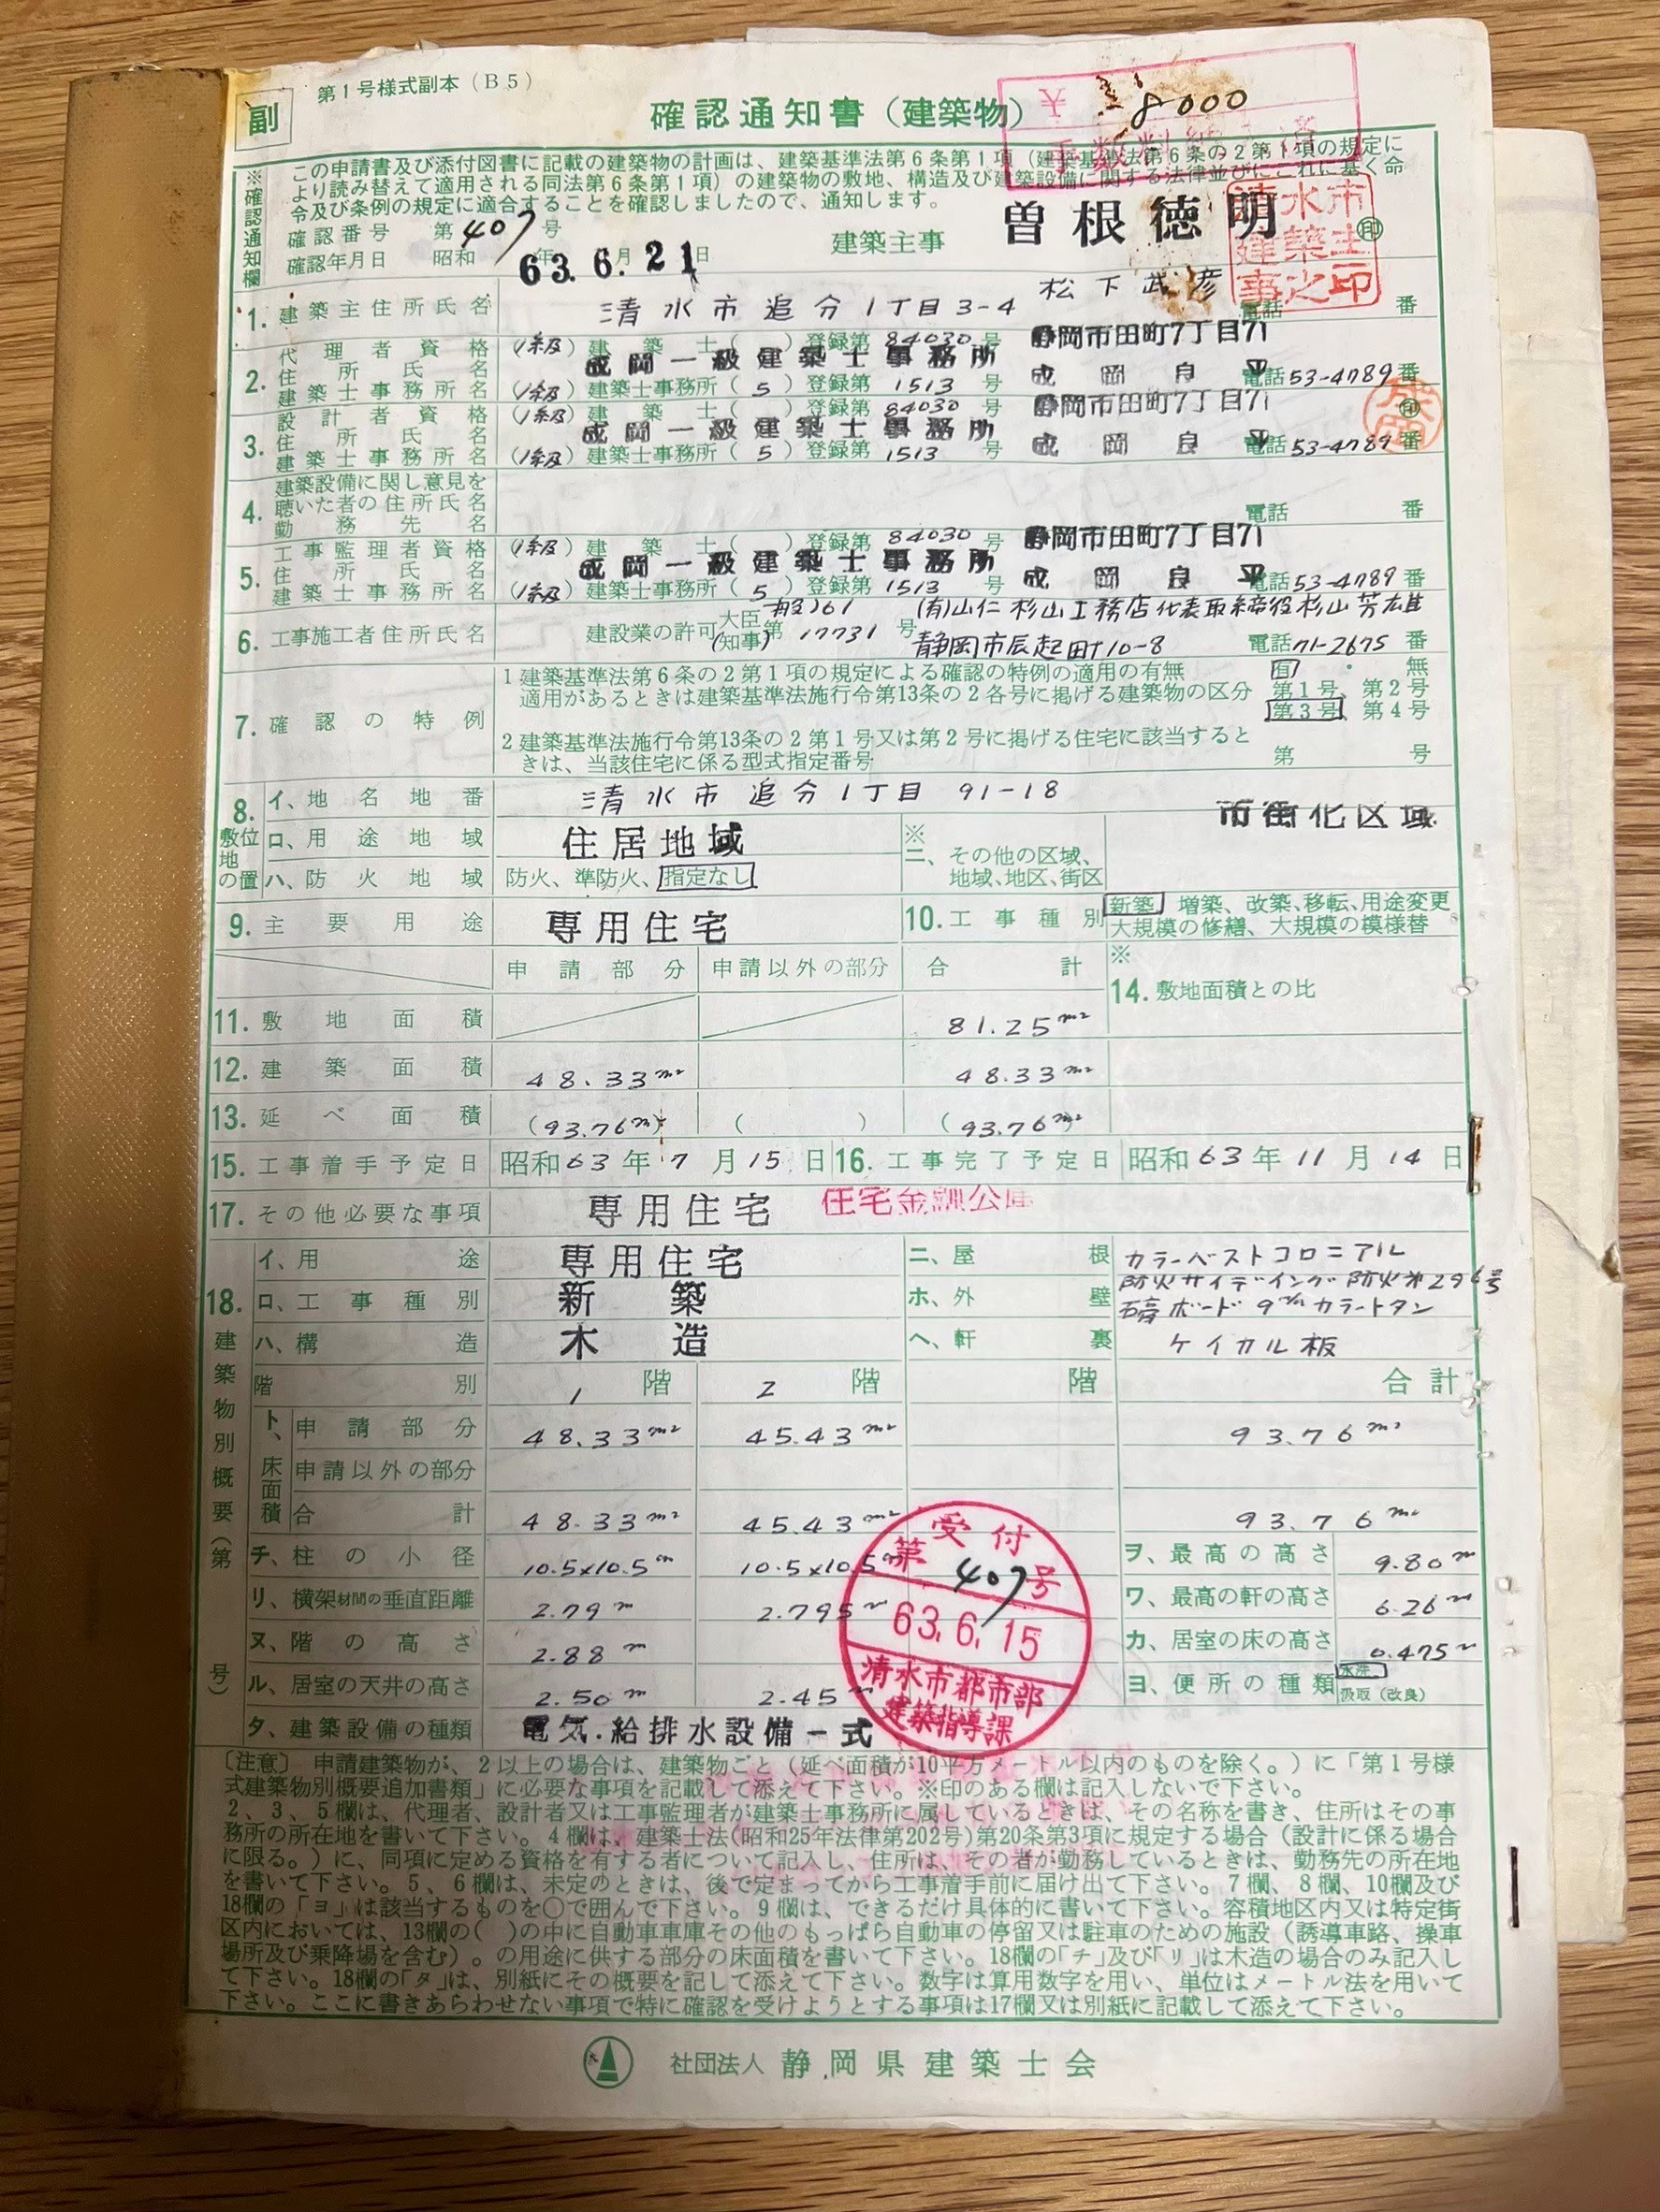 副
第1号様式副本（B5）
確認通知書（建築物）
¥ 8000
※確認通知欄
この申請書及び添付図書に記載の建築物の計画は、建築基準法第6条第1項（建築基準法第6条の2第1項の規定に
より読み替えて適用される同法第6条第1項）の建築物の敷地、構造及び建築設備に関する法律並びにこれに基く命
令及び条例の規定に適合することを確認しましたので、通知します。
確認番号 第407号
確認年月日 昭和63年6月21日
建築主事 曽根徳明 ㊞
清水市建築主事之印
1. 建築主住所氏名 清水市追分1丁目3-4 松下武彦 電話 番
2. 代理者資格 (1級) 建築士( )登録第84030号 静岡市田町7丁目71
住所氏名 成岡一級建築士事務所 成岡良平
建築士事務所名 (1級) 建築士事務所(5)登録第1513号 電話53-4789番
3. 設計者資格 (1級) 建築士( )登録第84030号 静岡市田町7丁目71 ㊞
住所氏名 成岡一級建築士事務所 成岡良平
建築士事務所名 (1級) 建築士事務所(5)登録第1513号 電話53-4789番
4. 建築設備に関し意見を
聴いた者の住所氏名
勤務先名 電話 番
5. 工事監理者資格 (1級) 建築士( )登録第84030号 静岡市田町7丁目71
住所氏名 成岡一級建築士事務所 成岡良平
建築士事務所名 (1級) 建築士事務所(5)登録第1513号 電話53-4789番
6. 工事施工者住所氏名 建設業の許可 大臣(知事)第17731号 (有)山仁杉山工務店代表取締役杉山芳雄
静岡市辰起町10-8 電話71-2675番
7. 確認の特例
1 建築基準法第6条の2第1項の規定による確認の特例の適用の有無 有・無
適用があるときは建築基準法施行令第13条の2各号に掲げる建築物の区分 第1号、第2号
第3号、第4号
2 建築基準法施行令第13条の2第1号又は第2号に掲げる住宅に該当すると
きは、当該住宅に係る型式指定番号 第 号
8. 敷地の位置
イ、地名地番 清水市追分1丁目 91-18
ロ、用途地域 住居地域
ハ、防火地域 防火、準防火、指定なし
※ニ、その他の区域、
地域、地区、街区
市街化区域
9. 主要用途 専用住宅
10. 工事種別 新築 増築、改築、移転、用途変更
大規模の修繕、大規模の模様替
申請部分 申請以外の部分 合計
※14. 敷地面積との比
11. 敷地面積 81.25m²
12. 建築面積 48.33m² 48.33m²
13. 延べ面積 (93.76m²) ( ) (93.76m²)
15. 工事着手予定日 昭和63年7月15日 16. 工事完了予定日 昭和63年11月14日
17. その他必要な事項 専用住宅 住宅金融公庫
18. 建築物別概要(第 号)
イ、用途 専用住宅
ロ、工事種別 新築
ハ、構造 木造
ニ、屋根 カラーベストコロニアル
ホ、外壁 防火サイディング 防火木296号
石膏ボード 9m/m カラートタン
ヘ、軒裏 ケイカル板
階別 1階 2階 階 合計
ト、床面積
申請部分 48.33m² 45.43m² 93.76m²
申請以外の部分
合計 48.33m² 45.43m² 93.76m²
チ、柱の小径 10.5×10.5cm 10.5×10.5cm
リ、横架材間の垂直距離 2.79m 2.795m
ヌ、階の高さ 2.88m
ル、居室の天井の高さ 2.50m 2.45m
ヲ、最高の高さ 9.80m
ワ、最高の軒の高さ 6.26m
カ、居室の床の高さ 0.475m
ヨ、便所の種類 水洗
汲取（改良）
タ、建築設備の種類 電気.給排水設備一式
受付
第407号
63.6.15
清水市都市部
建築指導課
〔注意〕 申請建築物が、2以上の場合は、建築物ごと（延べ面積が10平方メートル以内のものを除く。）に「第1号様
式建築物別概要追加書類」に必要な事項を記載して添えて下さい。※印のある欄は記入しないで下さい。
2、3、5欄は、代理者、設計者又は工事監理者が建築士事務所に属しているときは、その名称を書き、住所はその事
務所の所在地を書いて下さい。4欄は、建築士法(昭和25年法律第202号)第20条第3項に規定する場合（設計に係る場合
に限る。）に、同項に定める資格を有する者について記入し、住所は、その者が勤務しているときは、勤務先の所在地
を書いて下さい。5、6欄は、未定のときは、後で定まってから工事着手前に届け出て下さい。7欄、8欄、10欄及び
18欄の「ヨ」は該当するものを○で囲んで下さい。9欄は、できるだけ具体的に書いて下さい。容積地区内又は特定街
区内においては、13欄の( )の中に自動車車庫その他のもっぱら自動車の停留又は駐車のための施設（誘導車路、操車
場所及び乗降場を含む）。の用途に供する部分の床面積を書いて下さい。18欄の「チ」及び「リ」は木造の場合のみ記入し
て下さい。18欄の「タ」は、別紙にその概要を記して添えて下さい。数字は算用数字を用い、単位はメートル法を用いて
下さい。ここに書きあらわせない事項で特に確認を受けようとする事項は17欄又は別紙に記載して添えて下さい。
社団法人 静岡県建築士会